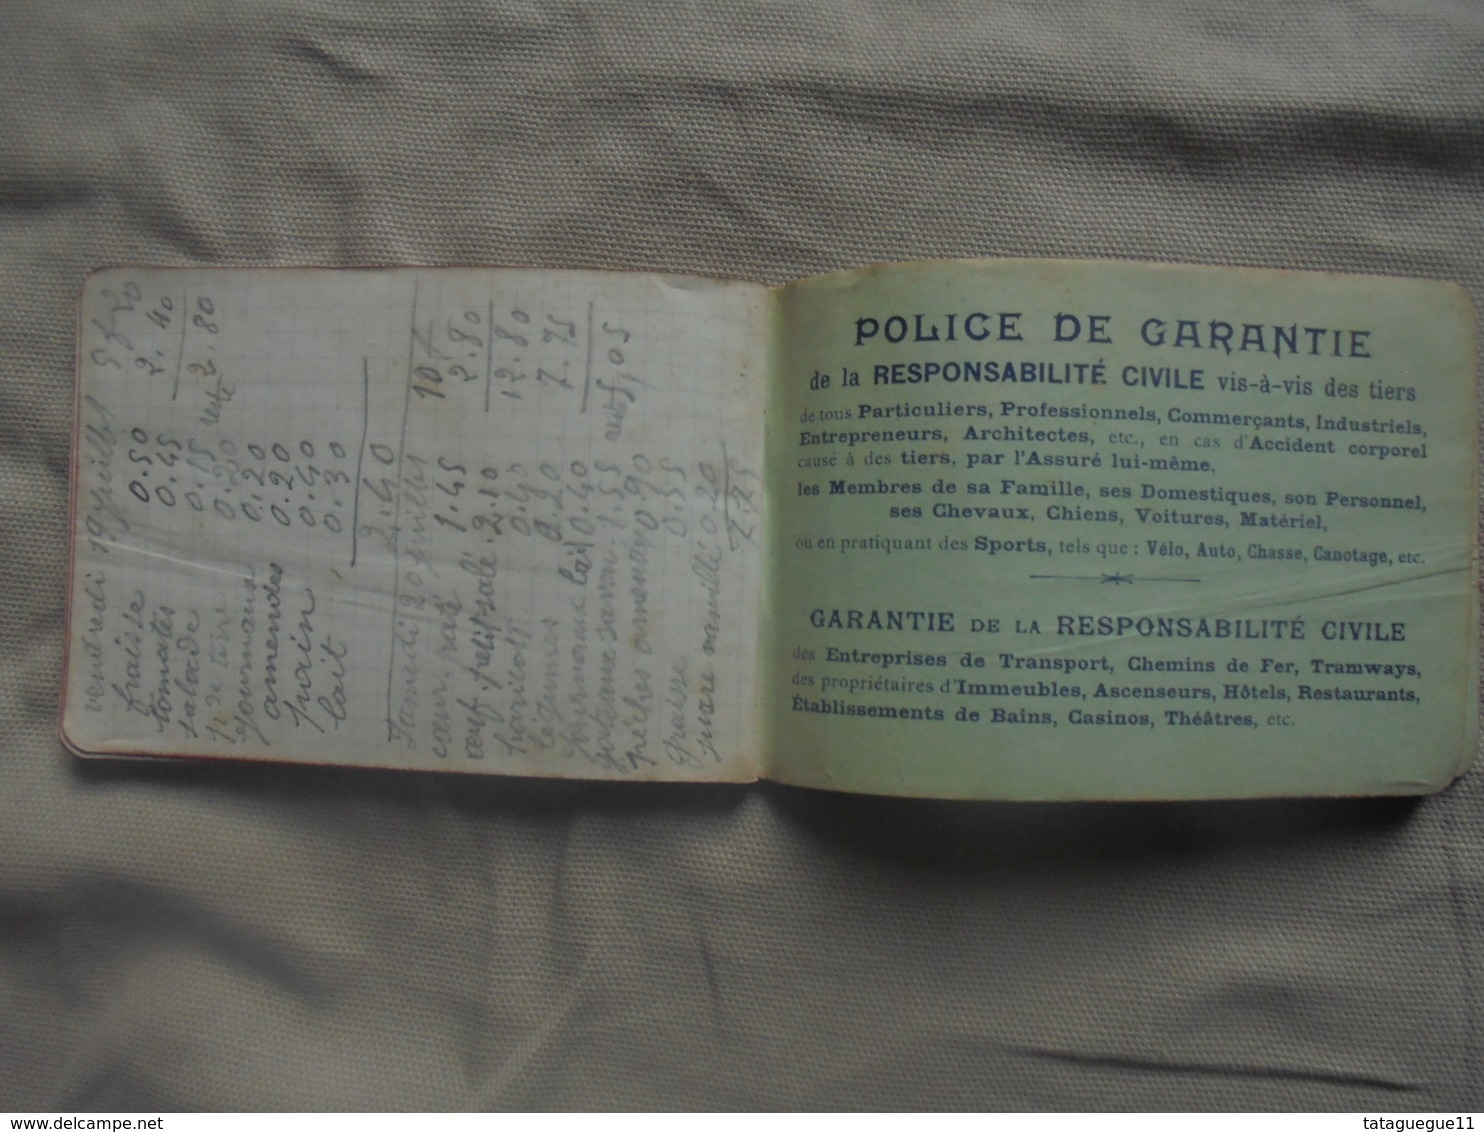 vendredi 19 juillet 5f20
fraisse 0.50 2.40
tomates 0.45
salade 0.15 reste 2.80
p de tere 0.20
0.20
amendes 0.20
pain 0.40
lait 0.30
2.40
Samedi 20 juillet 10f
1.45 2.80
œuf. petit salé. 2.10 12.80
haricots 0.40 7.75
légumes 0.20
lait 0.40 rest 5,05
savon 1.55
pêches 0.90
graisse 0.55
0.20
7.75
POLICE DE GARANTIE
de la RESPONSABILITÉ CIVILE vis-à-vis des tiers
de tous Particuliers, Professionnels, Commerçants, Industriels,
Entrepreneurs, Architectes, etc., en cas d'Accident corporel
causé à des tiers, par l'Assuré lui-même,
les Membres de sa Famille, ses Domestiques, son Personnel,
ses Chevaux, Chiens, Voitures, Matériel,
ou en pratiquant des Sports, tels que : Vélo, Auto, Chasse, Canotage, etc.
GARANTIE DE LA RESPONSABILITÉ CIVILE
des Entreprises de Transport, Chemins de Fer, Tramways,
des propriétaires d'Immeubles, Ascenseurs, Hôtels, Restaurants,
Établissements de Bains, Casinos, Théâtres, etc.
delcampe.net
tataguegue11